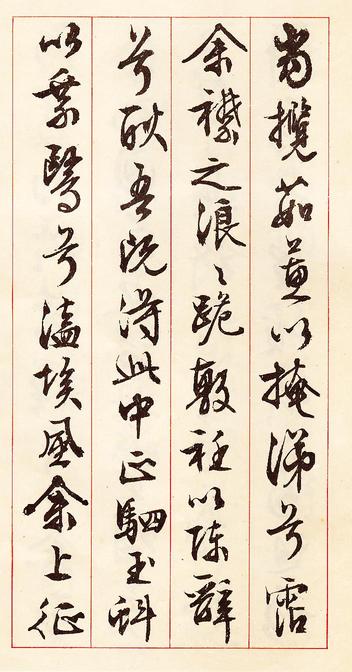 當攬茹蕙以掩涕兮霑
余襟之浪〻跪敷衽以陳辭
兮耿吾既得此中正駟玉虯
以椉鷖兮溘埃風余上征